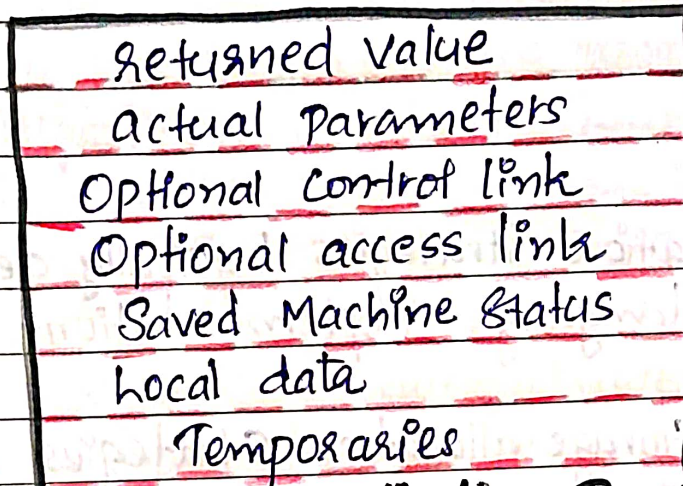 returned value
actual parameters
Optional control link
Optional access link
Saved Machine Status
Local data
Temporaries